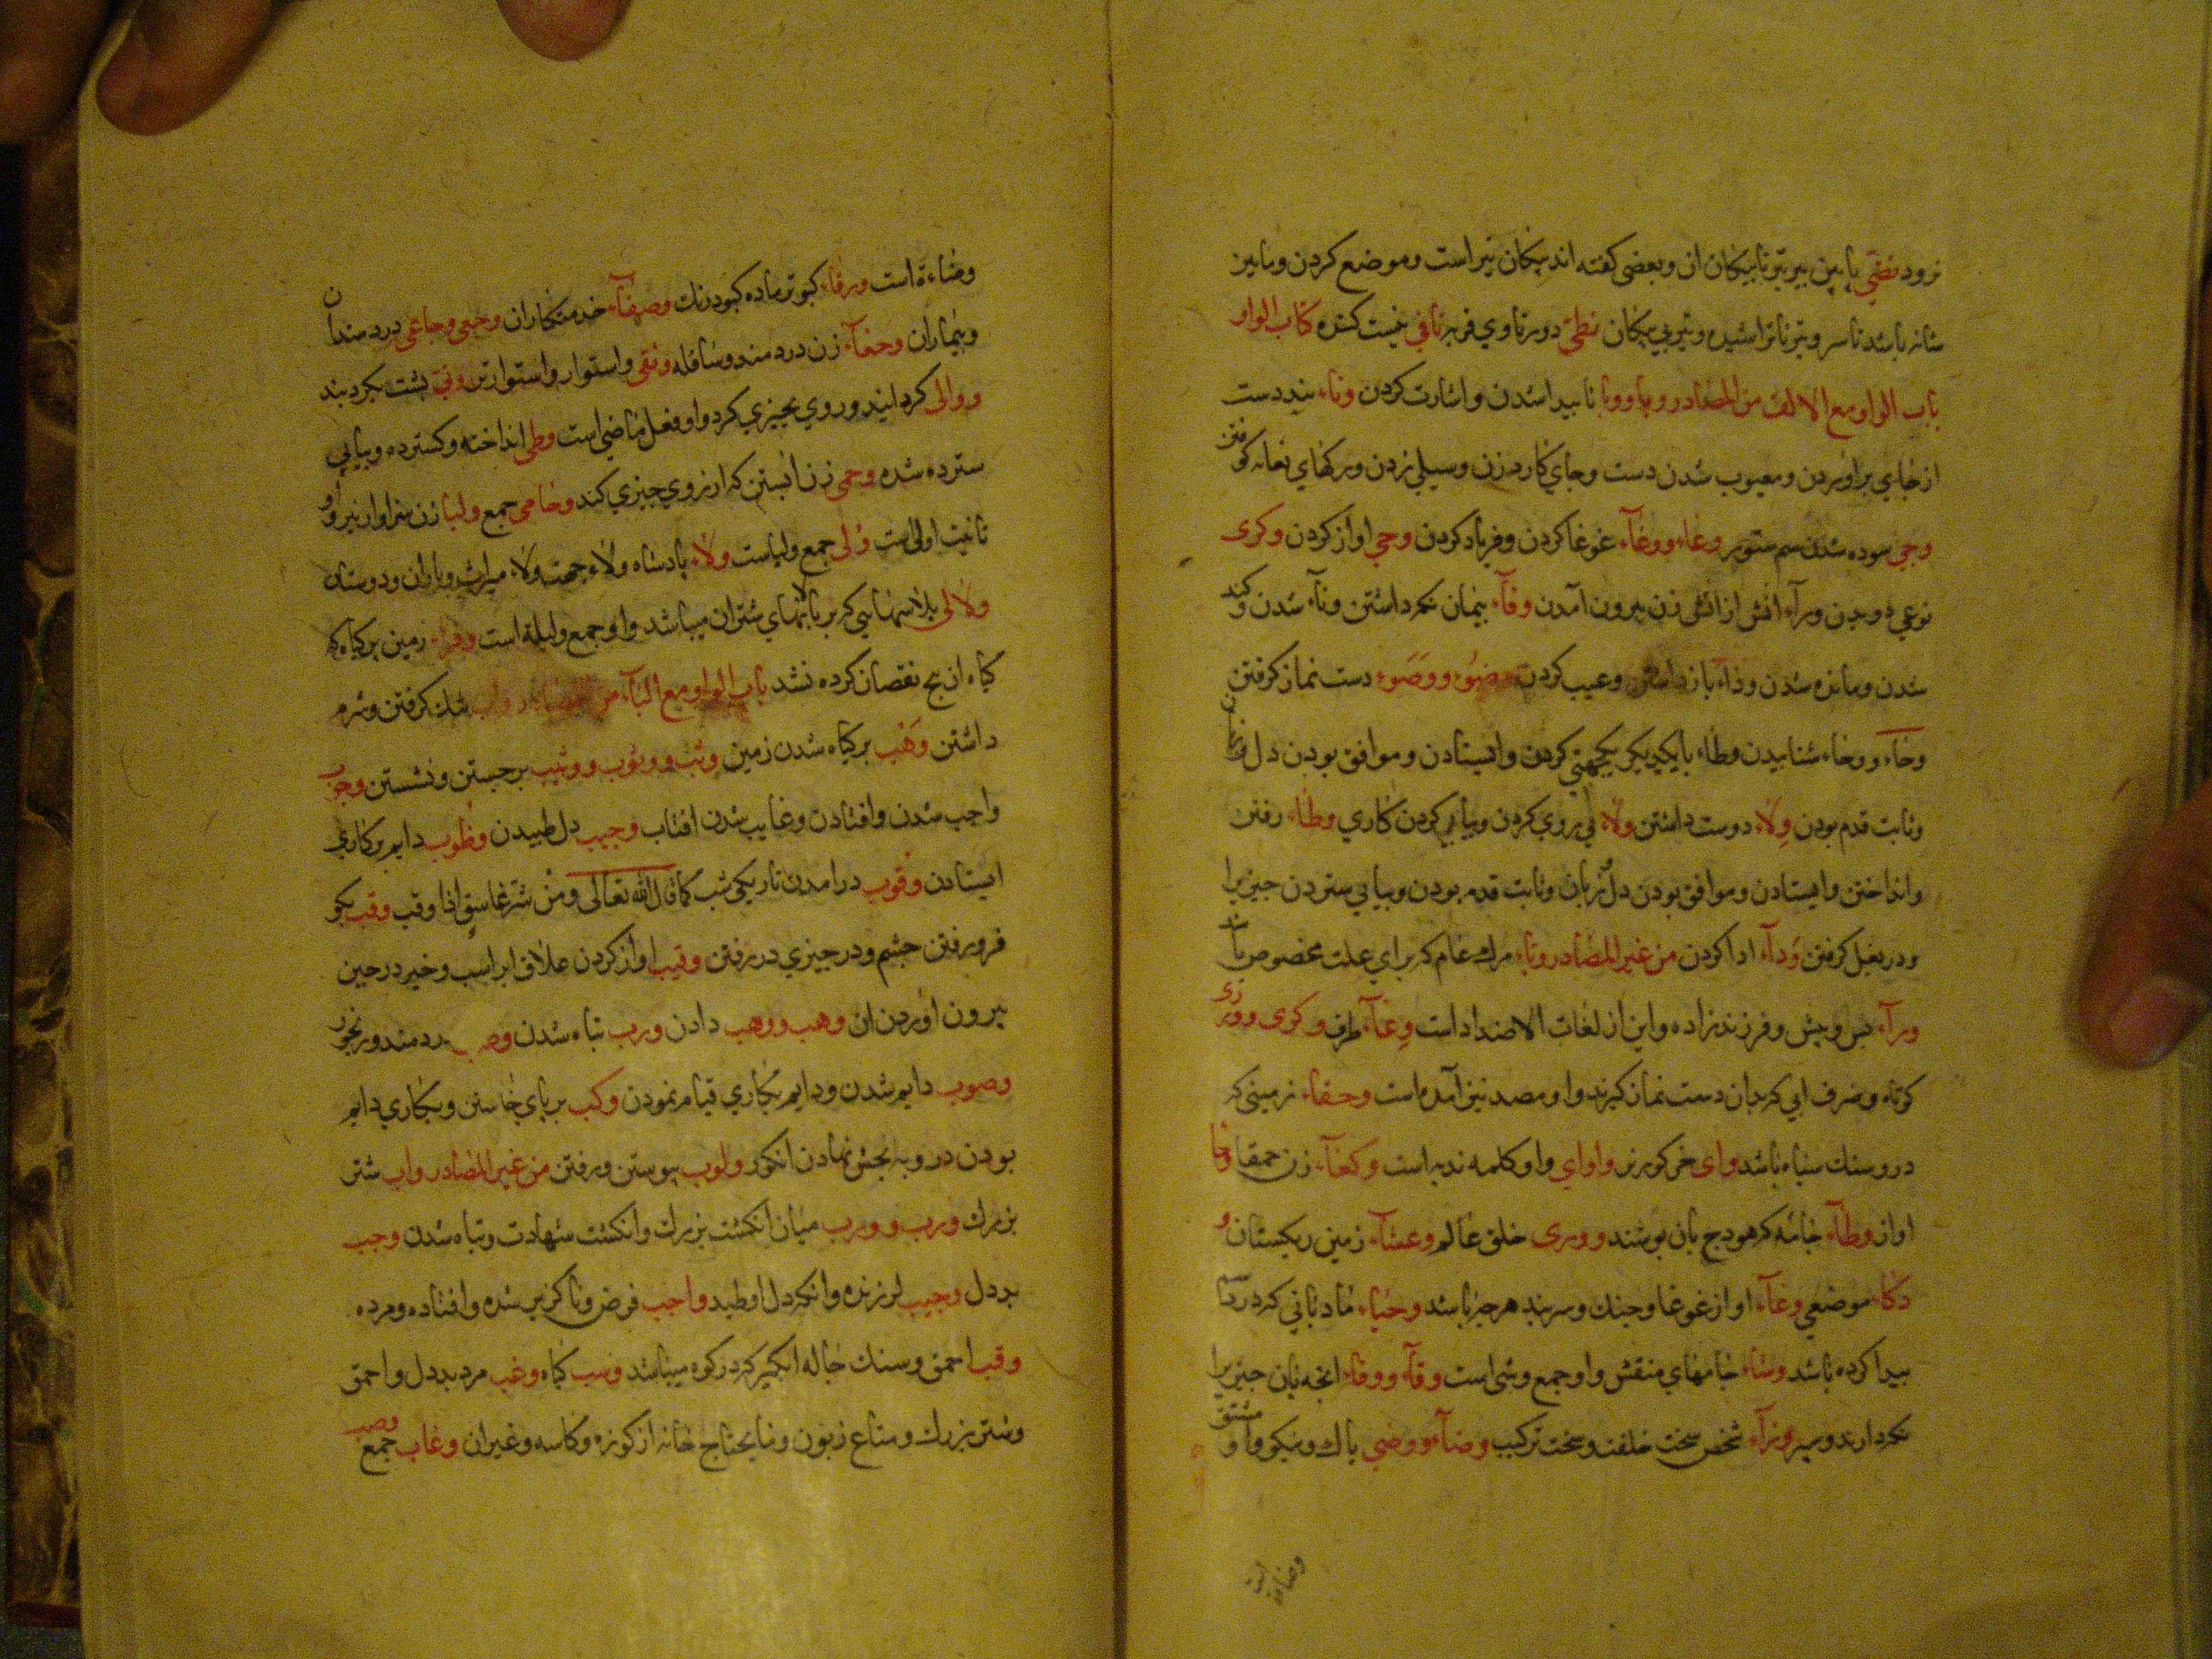 نرود نضی پایین پیر تیر تا پیکان ان و بعضی کفته اند پیکان تیر است و موضع کردن و مابین
شانه باشد تا سر و تیر ناتراشیده و تیر بی پیکان نطی دور ناوی فربه نافی نیست کننده کتاب الواو
باب الواو مع الالف من المصادر وباو وبا ناپیدا شدن و اشارت کردن وثاء بند دست
از جای براوردن و معیوب شدن دست وجای کارد زدن و سیلی زدن و رکهای نعانه کوفتن
وجی سوده شدن سم ستور وعاء ووغآء غوغا کردن و فریاد کردن وحی اواز کردن وکری
نوعی دویدن ورآء اتش از اتش زن بیرون آمدن وفآء پیمان نکه داشتن ونآء شدن وکند
شدن ومانده شدن وذاء باز داشتن وعیب کردن وضوء ووضوء دست نماز کرفتن
وخآء ووخاء شتابیدن وطاء بایکدیکر یکجهتی کردن وایستادن وموافق بودن دل وزبان
وثابت قدم بودن ولاء دوست داشتن ولاء پی روی کردن وپیاپی کردن کاری وطاء رفتن
وانداختن وایستادن وموافق بودن دل وزبان وثابت قدم بودن وپیاپی ستردن چیزیرا
ودر بغل کرفتن وَدآء ادا کردن من غیر المصادر وباء مرك عام که برای علت مخصوص باشد
ورآء پس وپیش وفرزند زاده واین از لغات الاضداد است وِعآء ظرف وکری ووزی
کوتاه وضرف ابی که بدان دست نماز کیرند واو مصدر نیز آمده است وحفاء زمینی که
درو سنك سیاه باشد وای خر کوره نر واوای واو کلمه ندبه است وکعآء زن حمقا وحا
اواز وطآء جامه که هودج بان پوشند ووری خلق عالم وعثآء زمین ریکستان و
دکاء موضعی وعآء اواز غوغا وجنك وسر بند هر چیز باشد وحیاء مادیانی که درد
پیدا کرده باشد وشاء جامهای منقش واو جمع وشی است وقآء ووقاء انچه بان چیزیرا
نکه دارند وسپر وزآء شخص سخت خلقت وسخت ترکیب وضآء ووضی پاك ونیکو واو مشتق
وضاءة است
وضاءة است ورقاء کبوتر ماده کبود رنك وصفآء خدمتکاران وجعی وجاعی دردمندان
وبیماران وجعآء زن دردمند وسافله وثقی واستوار واستوارتر وفی پشت بکردبند
ووالی کردانید وروی بچیزی کرد واو فعل ماضی است وطی انداخته وکسترده وپیاپی
سترده شده وحمی زن ابستن که ارزوی چیزی کند وحامی جمع ولیا زن سزاوارتر واو
تانیث اولی است وُلی جمع ولیاست ولاء پادشاه ولاء جهت ولاء میراث ویاران ودوستان
ولالی پلاسهایی که بر پالانهای شتران میباشد واو جمع ولیلة است وفراء زمین پر کیاه که
کیاه ان هیچ نقصان کرده نشد باب الواو مع البآء من المصادر وأب ننك کرفتن وشرم
داشتن وَهَب پر کیاه شدن زمین وثب ووثوب ووثیب برجستن ونشستن وجب
واجب شدن وافتادن وغایب شدن افتاب وجیب دل طپیدن وظوب دایم بر کاری
ایستادن وقوب درامدن تاریکی شب کما قال الله تعالی ومن شر غاسق اذا وقب وقب بکو
فرو رفتن چشم ودر چیزی در رفتن وقیب اواز کردن علاق ابر اسب وخیر در حین
بیرون اوردن ان وهب ووهب دادن ورب تباه شدن وصب دردمند ورنجور
وصوب دایم شدن ودایم بکاری قیام نمودن وکب بر پای خاستن وبکاری دایم
بودن درو به بخش نهادن انکور ولوب پیوستن ورفتن من غیر المصادر واب شتر
بزرك ورب وورب میان انکشت بزرك وانکشت شهادت وتباه شدن وجب
بددل وجیب لرزنده وانکه دل او طپد واجب فرض وناکزیر شده وافتاده ومرده
وقب احمق وسنك چاله ابکیر که در کوه میباشد وسب کیاه وغب مرد بددل واحمق
وشتر بزرك ومتاع زبون ومایحتاج خانه از کوزه وکاسه وغیر ان وغاب جمع وصب